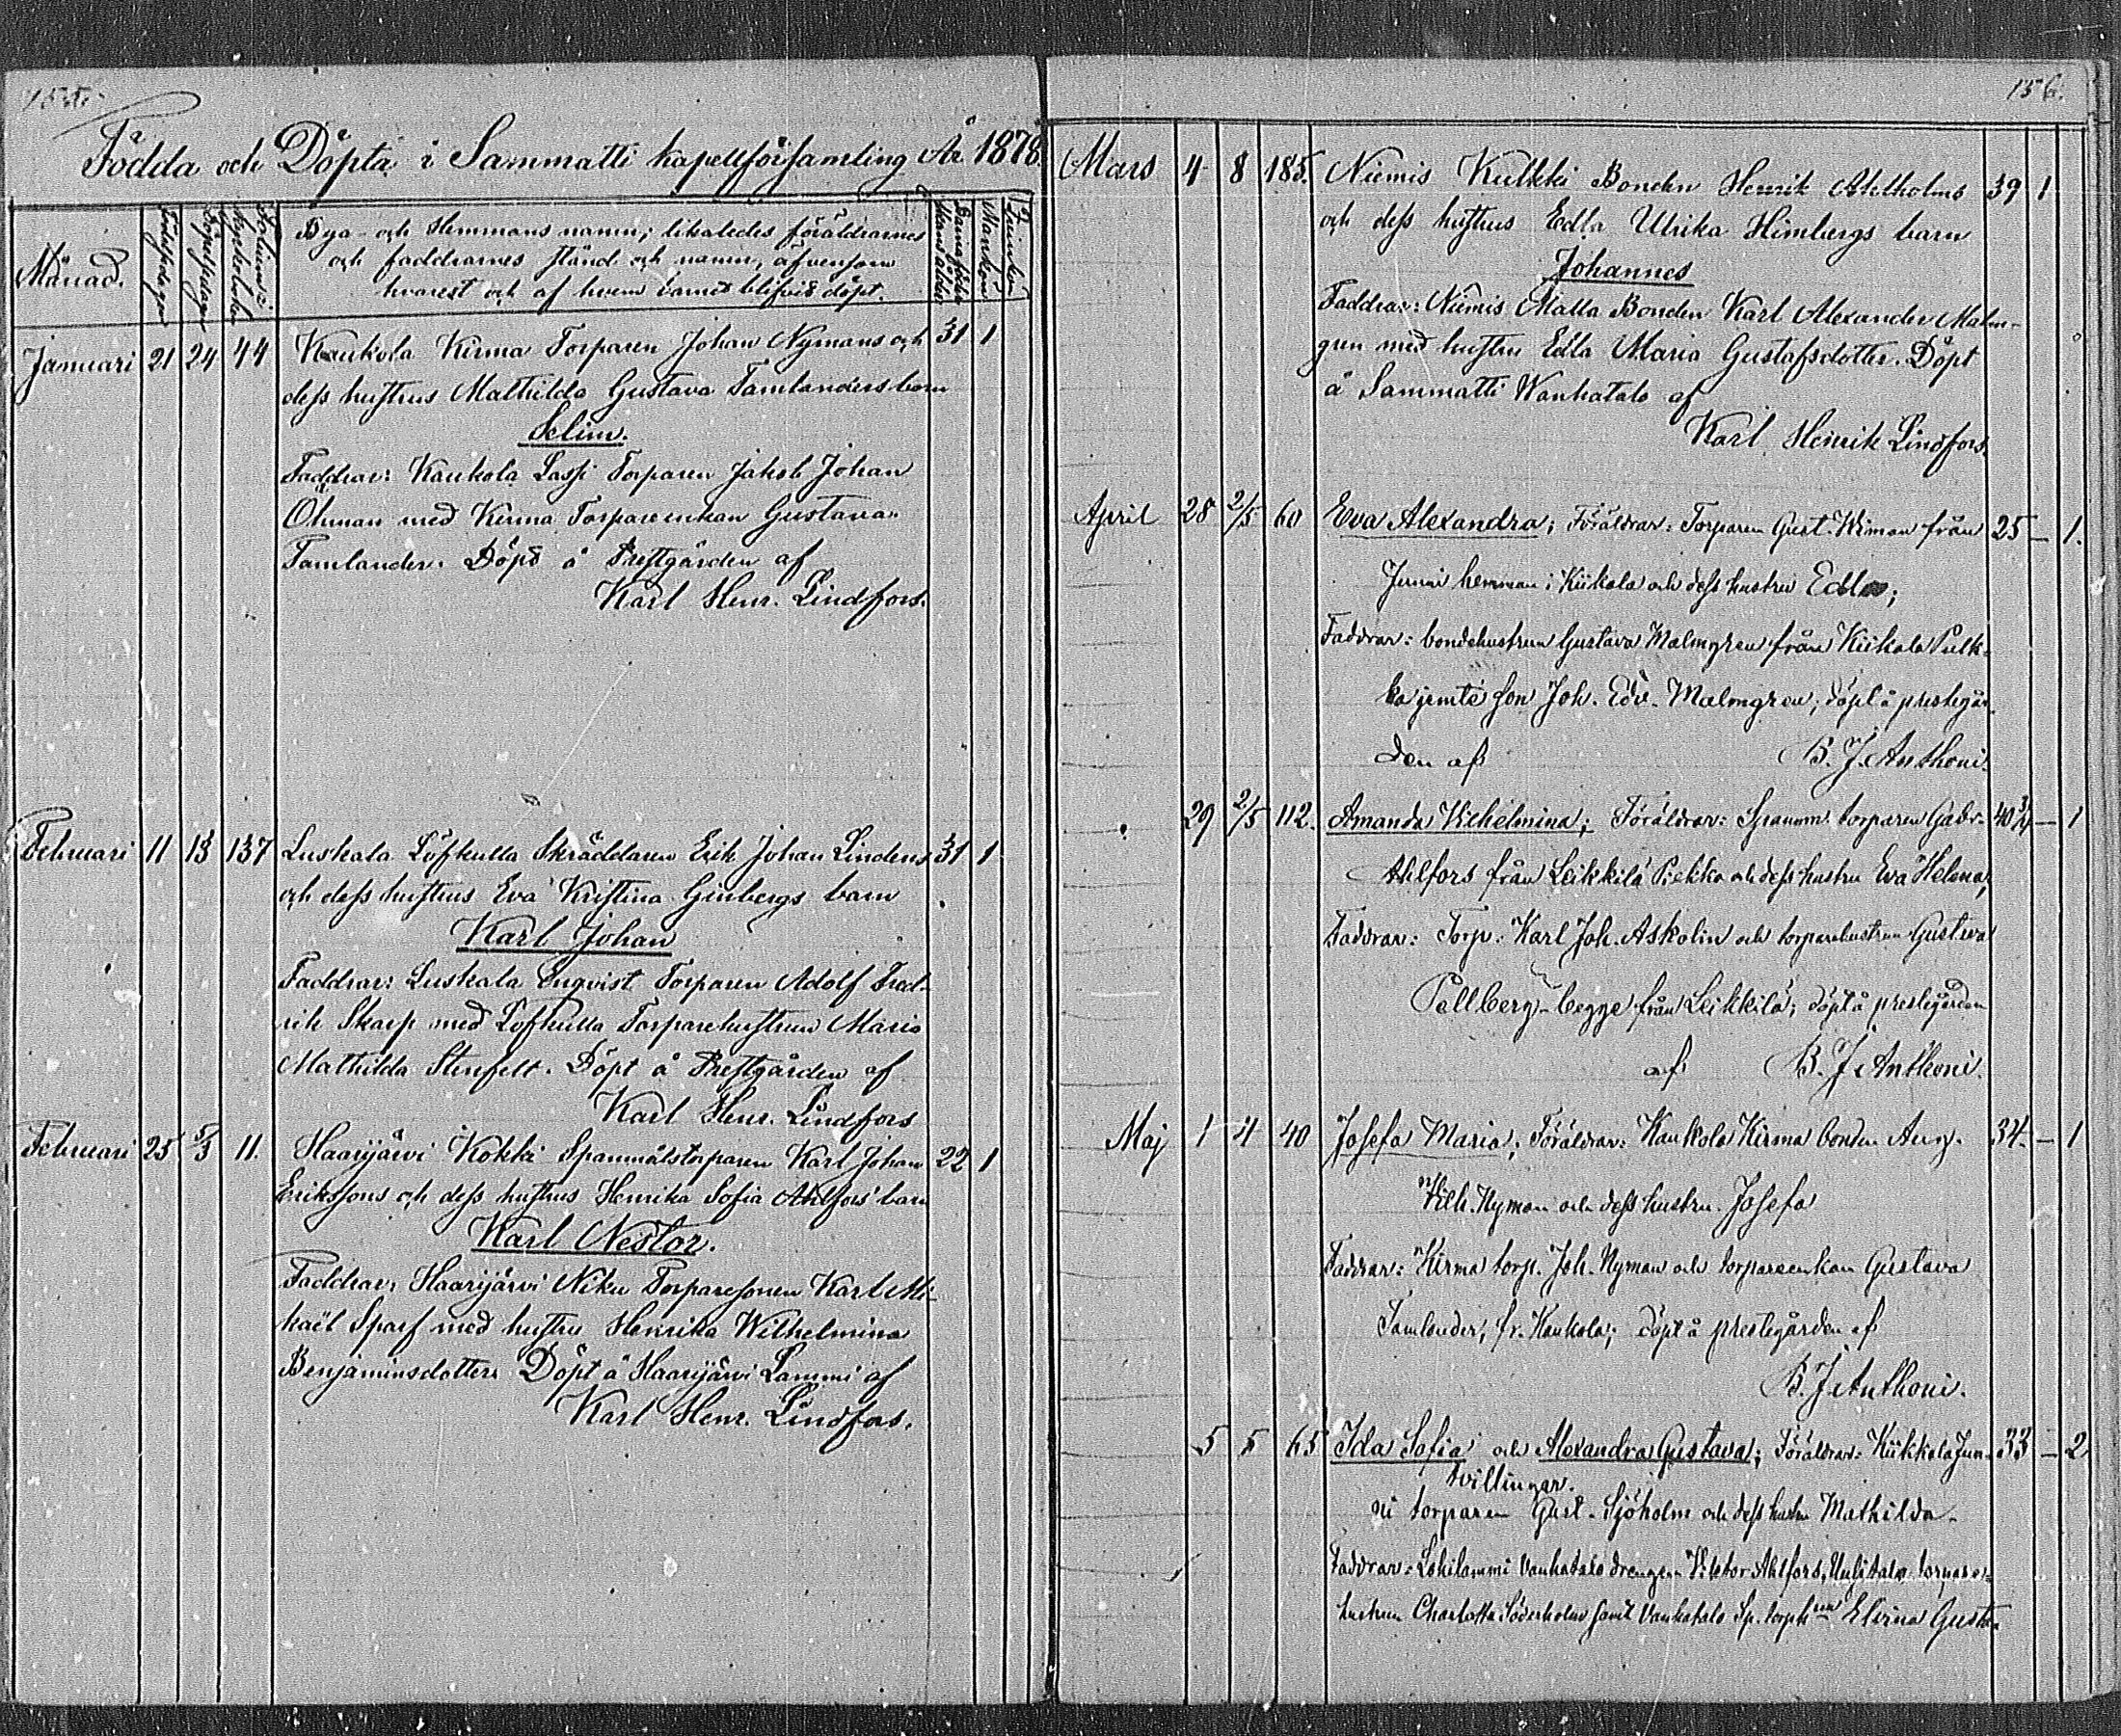 Födda och Döpta i Sammatti kapellförsamling År 1878.
Månad.
Födelsedagen
Döpelsedagen
Folium i Kyrkoboken
Bya- och Hemmans namn; likaledes föräldrarnes
och faddrarnes stånd och namn, äfvensom
hvarest och af hvem barnet blifvit döpt.
Barnaföderskans ålder
Mankön
Qvinkön
Januari 21 24 44 Kaukola Kirma Torparen Johan Nymans och 31 1
dess hustrus Mathilda Gustava Tamlanders barn
Selim.
Faddrar: Kaukola Lassi Torparen Jakob Johan
Öhman med Kirma Torpareenkan Gustava
Tamlander. Döpt å Prestgården af
Karl Henr. Lindfors.
Februari 11 13 137 Luskala Löfkulla Skräddaren Erik Johan Lindens 31 1
och dess hustrus Eva Kristina Ginbergs barn
Karl Johan
Faddrar: Luskala Enqvist Torparen Adolf Fred-
rik Skarp med Löfkulla Torparehustrun Maria
Mathilda Stenfelt. Döpt å Prestgården af
Karl Henr. Lindfors
Februari 25 5/3 11. Haarijärvi Kokki Spanmålstorparen Karl Johan 22 1
Erikssons och dess hustrus Henrika Sofia Ahlfors barn
Karl Nestor.
Faddrar: Haarijärvi Niku Torparesonen Karl Mi-
kaël Sparf med hustru Henrika Wilhelmina
Benjaminsdotter. Döpt å Haarijärvi Lammi af
Karl Henr. Lindfors.
156.
Mars 4 8 185. Niemis Kulkki Bonden Henrik Ahlholms 39 1
och dess hustrus Edla Ulrika Himbergs barn
Johannes
Faddrar: Niemis Malla Bonden Karl Alexander Malm-
gren med hustru Edla Maria Gustafsdotter. Döpt
å Sammatti Wanhatalo af
Karl Henrik Lindfors.
April 28 2/5 60 Eva Alexandra; Föräldrar: Torparen Gust. Wiman från 25 — 1.
Junni hemman i Kiikala och dess hustru Edla;
Faddrar: bondehustrun Gustava Malmgren från Kiikala Pulk-
ka jemte son Joh. Edv. Malmgren; döpt å prestegår-
den af B. J. Anthoni.
29 2/5 112. Amanda Vilhelmina; Föräldrar: Spannm. torparen Gabr. 40 3/4 — 1
Ahlfors från Leikkilä Piekka och dess hustru Eva Helena,
Faddrar: Torp. Karl Joh. Askolin och torparehustrun Gustava
Pellberg – begge från Leikkilä; döpt å prestegården
af B. J. Anthoni.
Maj 1 4 40 Josefa Maria; Föräldrar: Kaukola Kirma bonden Aug. 34. — 1
Vilh. Nyman och dess hustru Josefa
Faddrar: Kirma torp. Joh. Nyman och torpareenkan Gustava
Tamlander, fr. Kaukola; döpt å prestegården af
B. J. Anthoni.
5 5 65 Ida Sofia och Alexandra Gustava; Föräldrar: Kiikkala Jun- 33 — 2
tvillingar.
ni torparen Gust. Sjöholm och dess hustru Mathilda.
Faddrar: Lohilammi Vanhatalo drengen Viktor Ahlfors, Uusitalo torpare-
hustrun Charlotta Söderholm samt Vanhatalo Sp. torph:un Elvina Gusta-